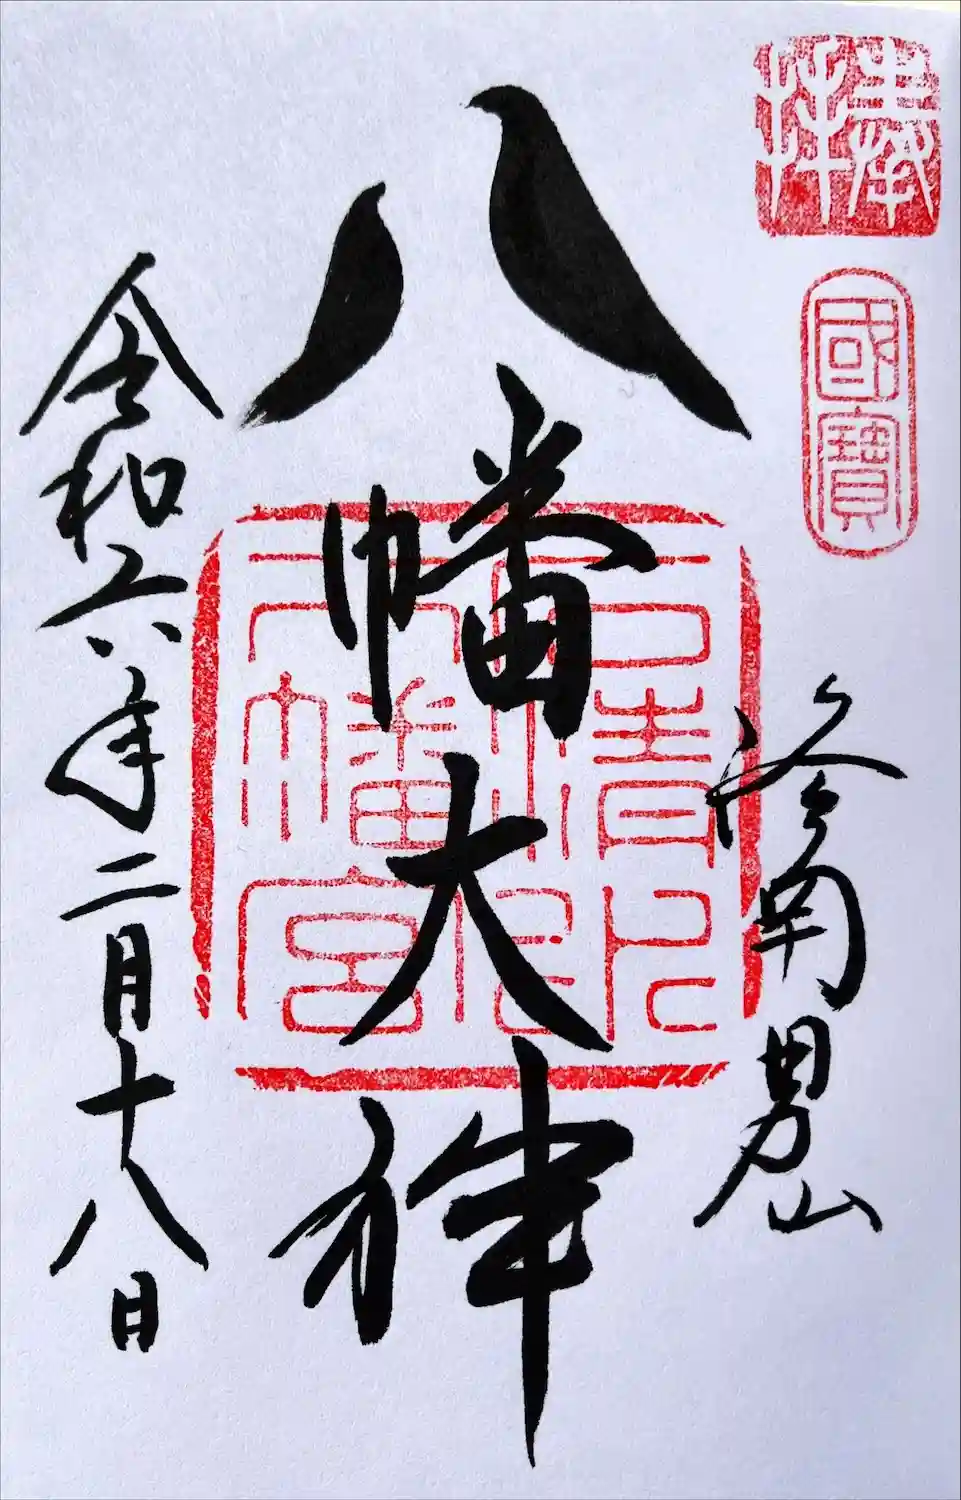 奉拝
國寶
洛南男山
八幡大神
石清水八幡宮印
令和六年二月十八日